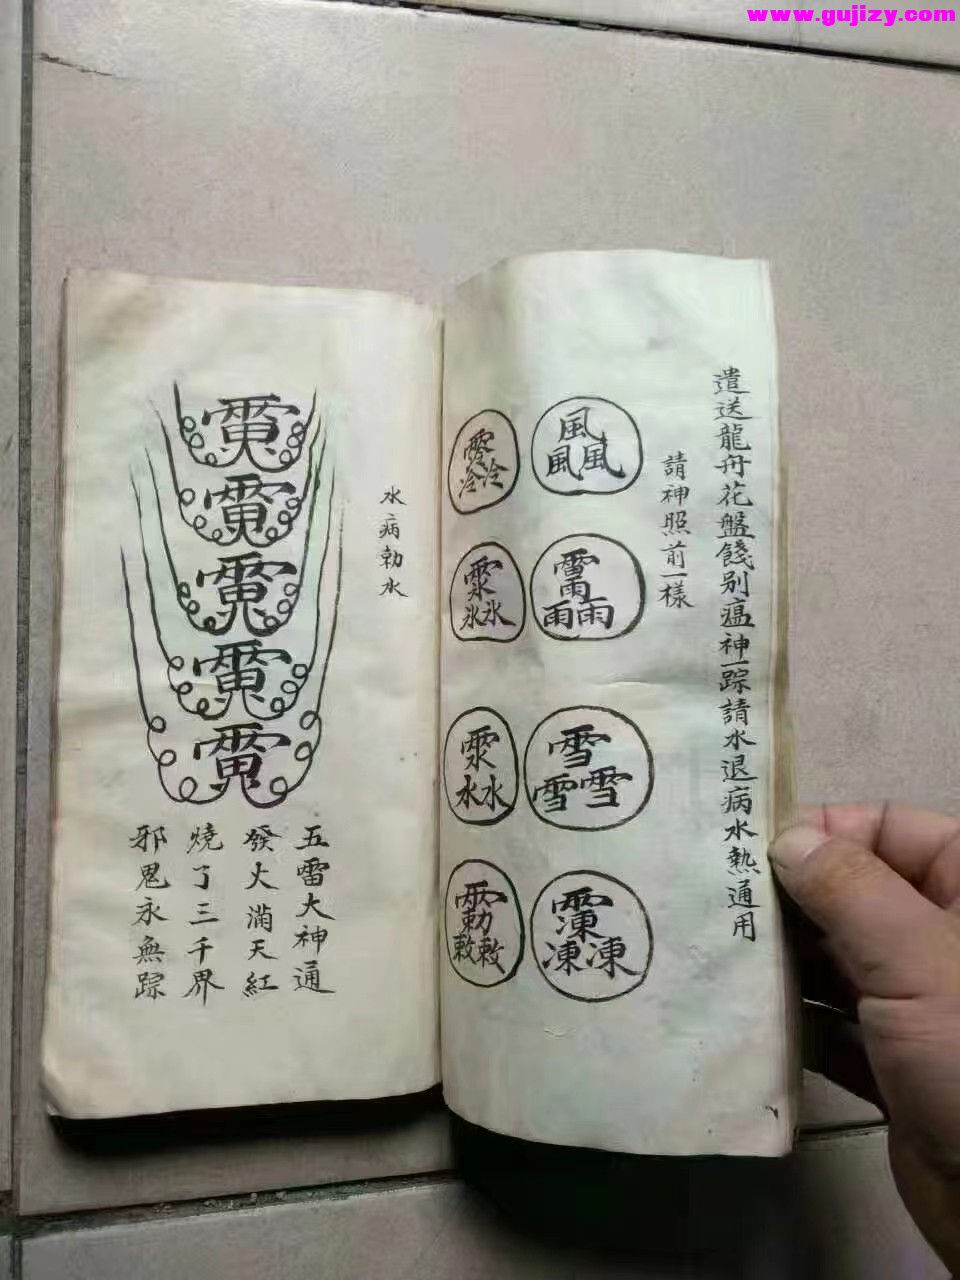 www.gujizy.com
遣送龍舟花盤餞别瘟神一踪請水退病水熱通用
請神照前一樣
風風風
雪雪雪
凍凍
冷冷
氷氷
水水
敕敕
水病勅水
五雷大神通
發火滿天紅
燒了三千界
邪鬼永無踪